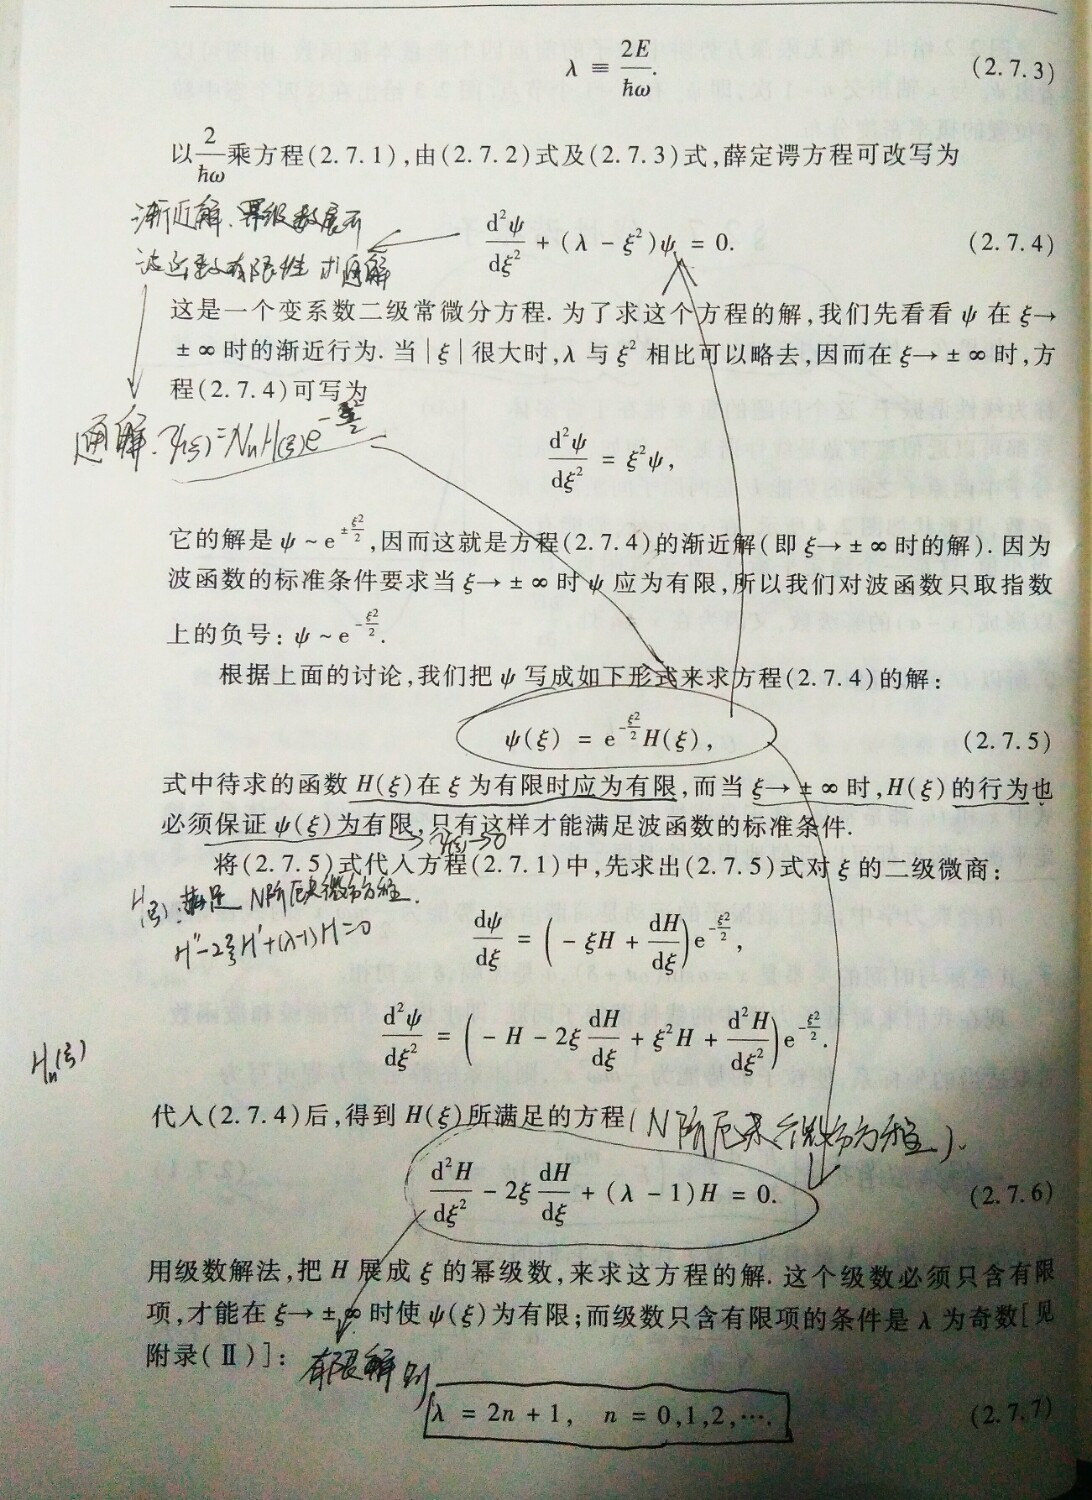 λ ≡ 2E/ħω. (2.7.3)
以2/ħω乘方程(2.7.1),由(2.7.2)式及(2.7.3)式,薛定谔方程可改写为
渐近解.幂级数展开
d²ψ/dξ² + (λ - ξ²)ψ = 0. (2.7.4)
波函数有限性 求通解
这是一个变系数二级常微分方程. 为了求这个方程的解,我们先看看 ψ 在 ξ→
± ∞ 时的渐近行为. 当|ξ|很大时,λ 与 ξ² 相比可以略去,因而在 ξ→ ± ∞ 时,方
程(2.7.4)可写为
通解. ψ(ξ)=NₙH(ξ)e^(-ξ²/2)
d²ψ/dξ² = ξ²ψ,
它的解是 ψ ~ e^(±ξ²/2),因而这就是方程(2.7.4)的渐近解(即 ξ→ ± ∞ 时的解). 因为
波函数的标准条件要求当 ξ→ ± ∞ 时 ψ 应为有限,所以我们对波函数只取指数
上的负号: ψ ~ e^(-ξ²/2).
根据上面的讨论,我们把 ψ 写成如下形式来求方程(2.7.4)的解:
ψ(ξ) = e^(-ξ²/2)H(ξ), (2.7.5)
式中待求的函数 H(ξ)在 ξ 为有限时应为有限,而当 ξ→ ± ∞ 时,H(ξ)的行为也
必须保证 ψ(ξ)为有限,只有这样才能满足波函数的标准条件.
→ψ(ξ)→0
将(2.7.5)式代入方程(2.7.1)中,先求出(2.7.5)式对 ξ 的二级微商:
H(ξ):满足 N阶厄米微分方程.
H''-2ξH'+(λ-1)H=0
dψ/dξ = (- ξH + dH/dξ)e^(-ξ²/2),
d²ψ/dξ² = (- H - 2ξ dH/dξ + ξ²H + d²H/dξ²)e^(-ξ²/2).
Hₙ(ξ)
代入(2.7.4)后,得到 H(ξ)所满足的方程(N阶厄米微分方程).
d²H/dξ² - 2ξ dH/dξ + (λ - 1)H = 0. (2.7.6)
用级数解法,把 H 展成 ξ 的幂级数,来求这方程的解. 这个级数必须只含有限
项,才能在 ξ→ ± ∞ 时使 ψ(ξ)为有限;而级数只含有限项的条件是 λ 为奇数[见
附录(Ⅱ)]:
有限解则
λ = 2n + 1, n = 0,1,2,…. (2.7.7)